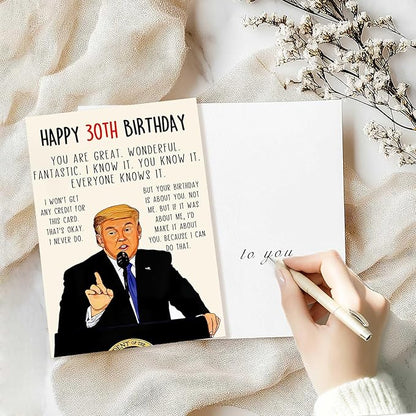 HAPPY 30TH BIRTHDAY
YOU ARE GREAT. WONDERFUL.
FANTASTIC. I KNOW IT. YOU KNOW IT.
EVERYONE KNOWS IT.
I WON'T GET
ANY CREDIT FOR
THIS CARD.
THAT'S OKAY
I NEVER DO.
BUT YOUR BIRTHDAY
IS ABOUT YOU, NOT
ME. BUT IF IT WAS
ABOUT ME, I'D
MAKE IT ABOUT
YOU. BECAUSE I CAN
DO THAT.
DENT OF
to you